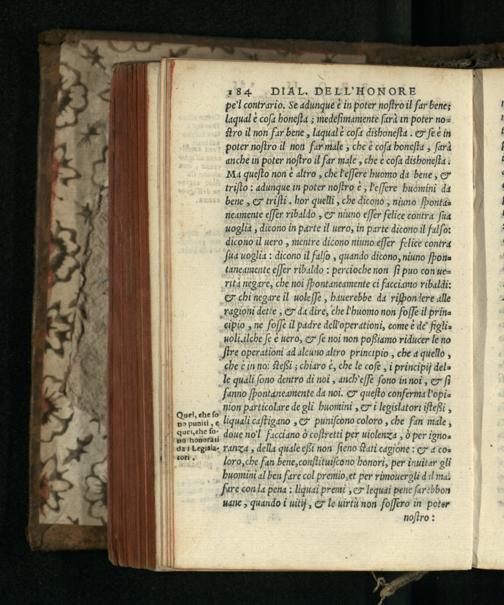 184 DIAL. DELL'HONORE
pe'l contrario. Se adunque è in poter nostro il far bene;
laqual è cosa honesta; medesimamente sarà in poter no=
stro il non far bene, laqual è cosa dishonesta. & se è in
poter nostro il non far male, che è cosa honesta, sarà
anche in poter nostro il far male, che è cosa dishonesta.
Ma questo non è altro, che l'essere huomo da bene, &
tristo: adunque in poter nostro è, l'essere huomini da
bene, & tristi. hor quelli, che dicono, niuno sponta=
neamente esser ribaldo, & niuno esser felice contra sua
uoglia, dicono in parte il uero, in parte dicono il falso:
dicono il uero, mentre dicono niuno esser felice contra
sua uoglia: dicono il falso, quando dicono, niuno spon=
taneamente esser ribaldo: percioche non si puo con ue=
rità negare, che noi spontaneamente ci facciamo ribaldi:
& chi negare il uolesse, hauerebbe da rispondere alle
ragioni dette, & da dire, che l'huomo non fosse il prin=
cipio, ne fosse il padre dell'operationi, come è de' figli=
uoli. ilche se è uero, & se noi non possiamo riducer le no
stre operationi ad alcuno altro principio, che a quello,
che è in noi stessi; chiaro è, che le cose, i principij del=
le quali sono dentro di noi, anch'esse sono in noi, & si
fanno spontaneamente da noi. & questo conferma l'opi=
nion particolare de gli huomini, & i legislatori istessi,
liquali castigano, & puniscono coloro, che fan male,
doue no'l facciano ò costretti per uiolenza, ò per igno=
ranza, della quale essi non sieno stati cagione: & a co=
loro, che fan bene, constituiscono honori, per inuitar gli
huomini al ben fare col premio, et per rimouergli dal mal
fare con la pena: liquai premi, & lequai pene sarebbon
uane, quando i uitij, & le uirtù non fossero in poter
nostro:
Quei, che so
no puniti, e
quei, che so-
no honorati
da i Legisla-
tori.